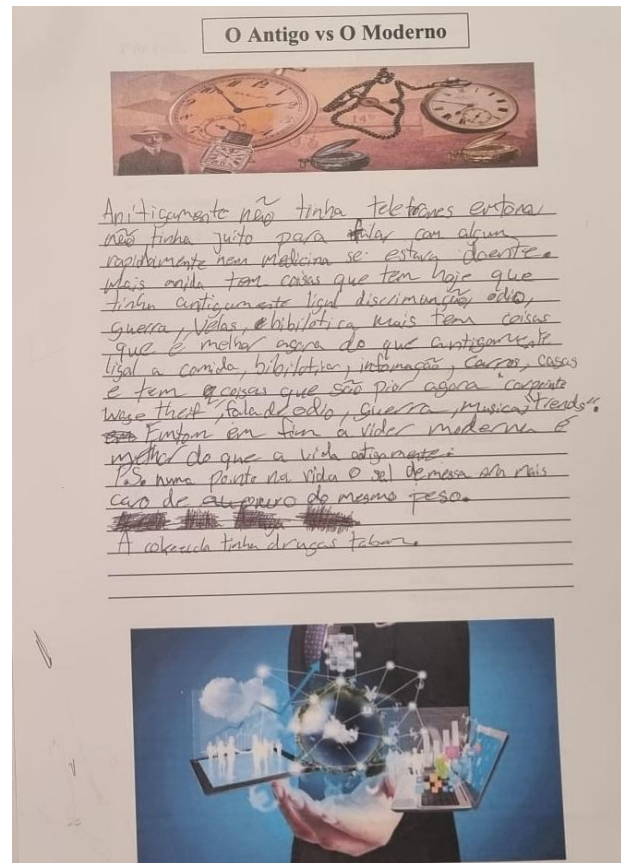 O Antigo vs O Moderno
Antigamente não tinha telefones entona
não tinha juito para falar com algum
rapidamente nem medicina se estava doente.
Mais anida tem coisas que tem hoje que
tinha antigamente ligal discrimunção, odio,
guerra, velas, bibilotica mais tem coisas
que é melhor agora do que antigamente
ligal a comida, bibilotica, infomação, carros, casas
e tem coisas que são pior agora "corprinte
wage theft", fala de odio, guerra, musica, "trends".
Emtom em fim a vider moderna É
melhor do que a vida antigamente.
P.S. numa pointo na vida o sal de messa era mais
caro de ouro do mesmo peso.
A cokecola tinha drugas tabam.